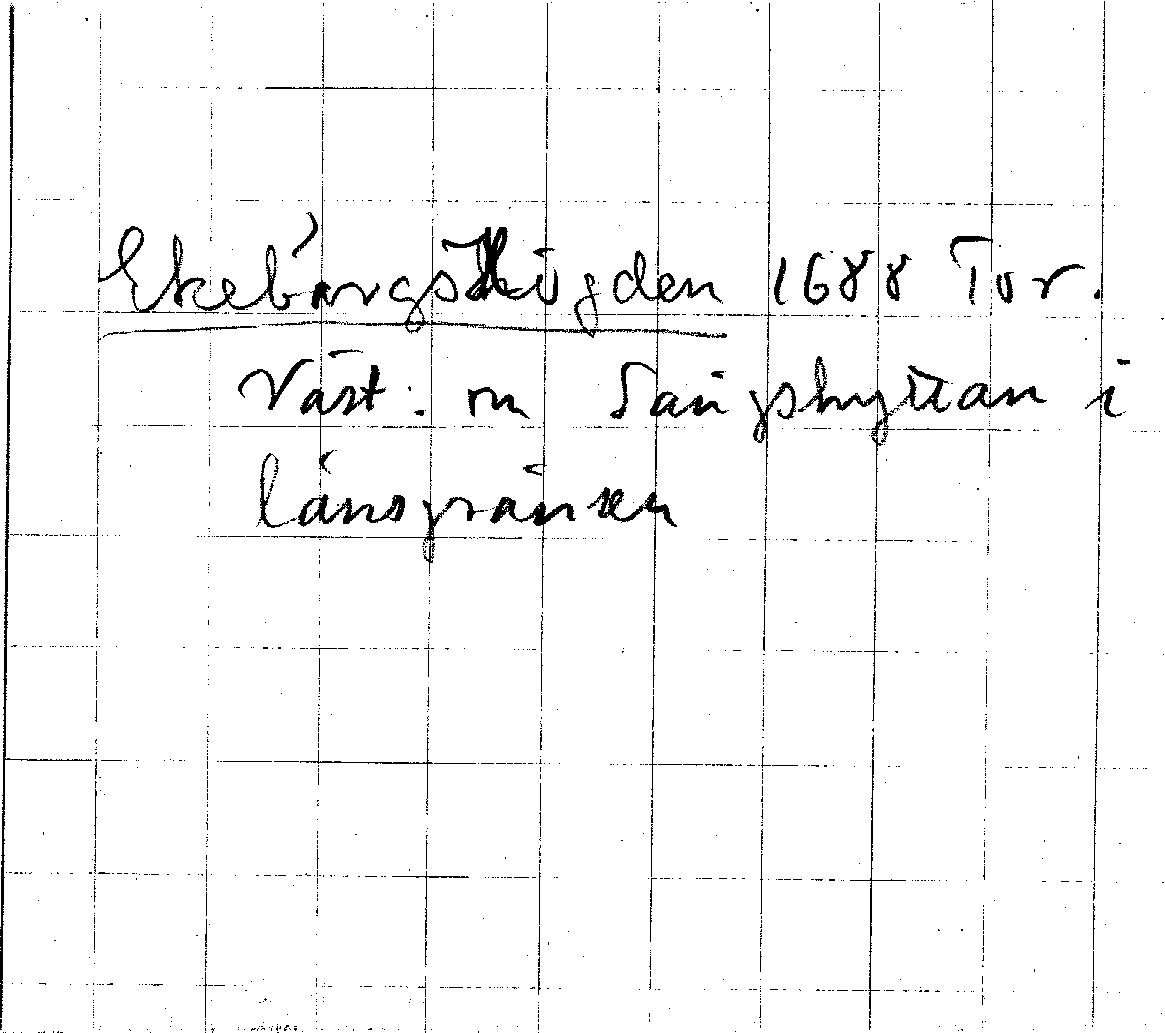 Ekebärgshögden 1688 Tor.
Väst: om Sångshyttan i
länsgränsen